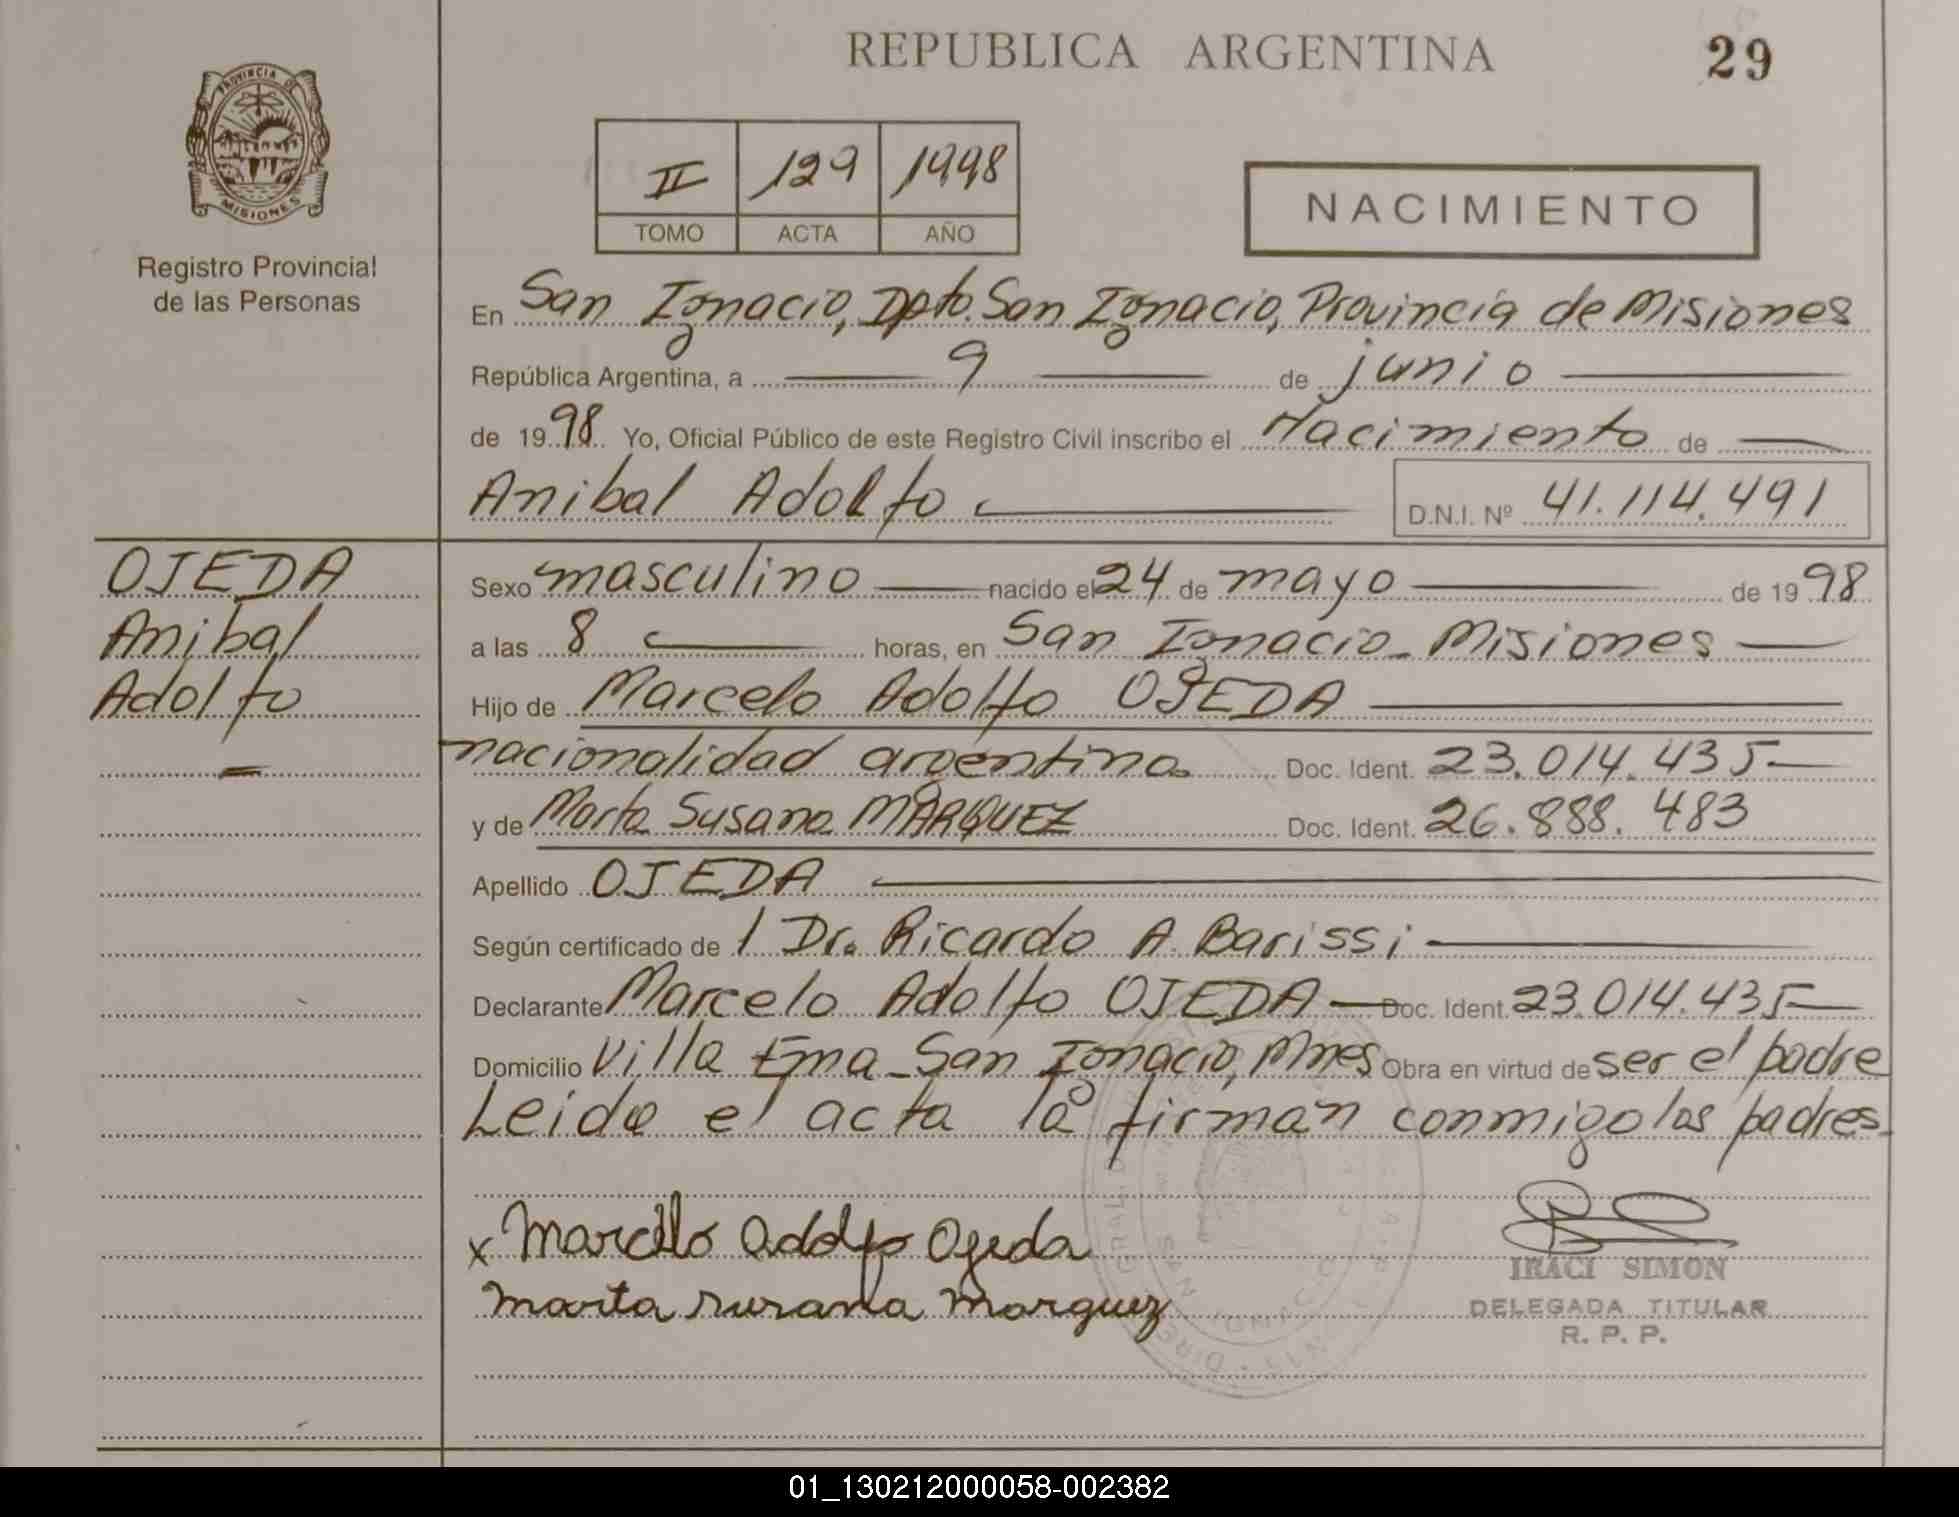 REPUBLICA ARGENTINA
29
PROVINCIA DE
MISIONES
Registro Provincial
de las Personas
II 129 1998
TOMO ACTA AÑO
NACIMIENTO
En San Ignacio, Dpto. San Ignacio, Provincia de Misiones
República Argentina, a 9 de junio
de 1998 Yo, Oficial Público de este Registro Civil inscribo el Nacimiento de
Anibal Adolfo D.N.I. Nº 41.114.491
OJEDA
Anibal
Adolfo
Sexo masculino nacido el 24 de mayo de 1998
a las 8 horas, en San Ignacio - Misiones
Hijo de Marcelo Adolfo OJEDA
nacionalidad argentina Doc. Ident. 23.014.435
y de Marta Susana MARQUEZ Doc. Ident. 26.888.483
Apellido OJEDA
Según certificado de / Dr. Ricardo A. Barissi
Declarante Marcelo Adolfo OJEDA Doc. Ident. 23.014.435
Domicilio Villa Ema - San Ignacio, Mnes Obra en virtud de ser el padre
Leida el acta la firman conmigo los padres.
x Marcelo Adolfo Ojeda
Marta Susana Marquez
IRACI SIMON
DELEGADA TITULAR
R. P. P.
SAN IGNACIO
01_130212000058-002382